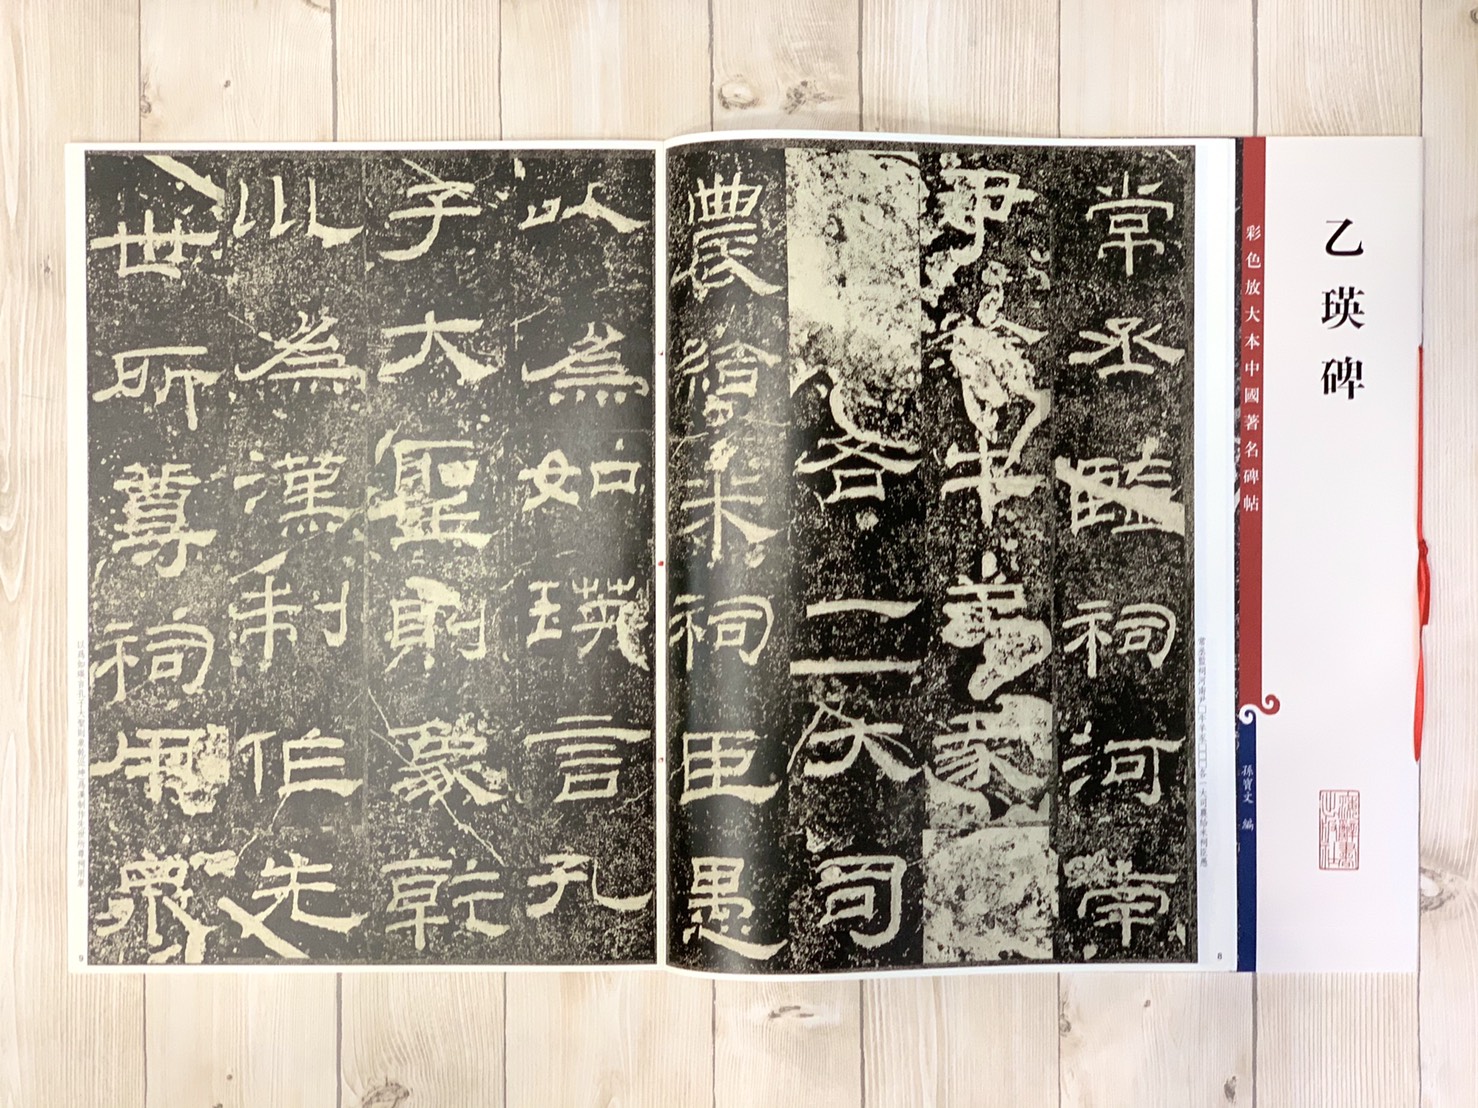 乙瑛碑
彩色放大本中國著名碑帖
孫寶文 編
常丞監祠河南
尹牛羊豕
各一大司
農給米祠臣愚
常丞監祠河南尹□牛羊豕□□□各一大司農給米祠臣愚
8
以為如瑛言孔
子大聖則象乾
巛為漢制作先
世所尊祠用衆
以爲如瑛言孔子大聖則象乾坤爲漢制作先世所尊祠用衆
9